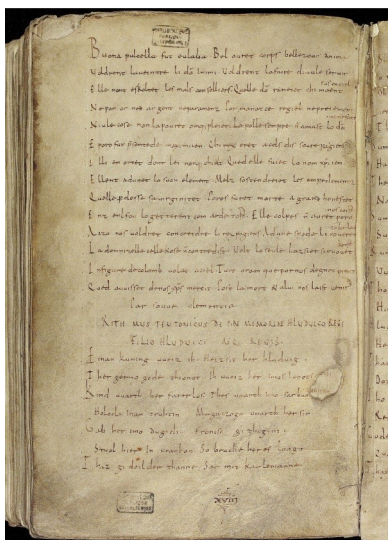 Buona pulcella fut eulalia. Bel auret corps bellezour anima
Voldrent la ueintre li dō inimi. Voldrent la faire diaule seruir
Elle nont eskoltet les mals conselliers. Quelle dō raneiet chi maent sus en ciel
Ne por or ned argent ne paramenz. Por manatce regiel ne preiement
Niule cose non la pouret omq; pleier. La polle sempre n̄ amast lo dō menestier
E poro fut p̄sentede maximiien. Chi rex eret a cels dis soure pagiens
Il li enortet dont lei nonq; chielt. Qued elle fuiet lo nom xp̄iien
Ellent adunet lo suon element. Melz sostendreiet les empedementz
Quelle p̄desse sa uirginitet. Poros furet morte a grand honestet
Enz enl fou lo getterent com arde tost. Elle colpes n̄ auret poro nos coist
A czo nos uoldret concreidre li rex pagiens. Ad une spede li roueret tolir lo chief
La domnizelle celle kose n̄ contredist. Volt lo seule lazsier si ruouet krist
In figure de colomb uolat a ciel. Tuit oram que por nos degnet preier
Qued auuisset de nos xp̄s mercit. Post la mort & a lui nos laist uenir
Par souue clementia
RITHMUS TEUTONICUS DE PIAE MEMORIAE HLUDUICO REGE
FILIO HLUDUICI AEQ; REGIS
Einan kuning uueiz ih. Heizsit her hluduig.
Ther gerno gode thionot. Ih uueiz her imos lonot
Kind uuarth her faterlos. Thes uuarth imo sar buoz
Holoda inan truhtin. Magaczogo uuarth her sin
Gab her imo dugidi. Fronisc githigini.
Stuol hier in urankon. So bruche her es lango.
Thaz gideilder thanne. Sar mit karlemanne
XVIIJ